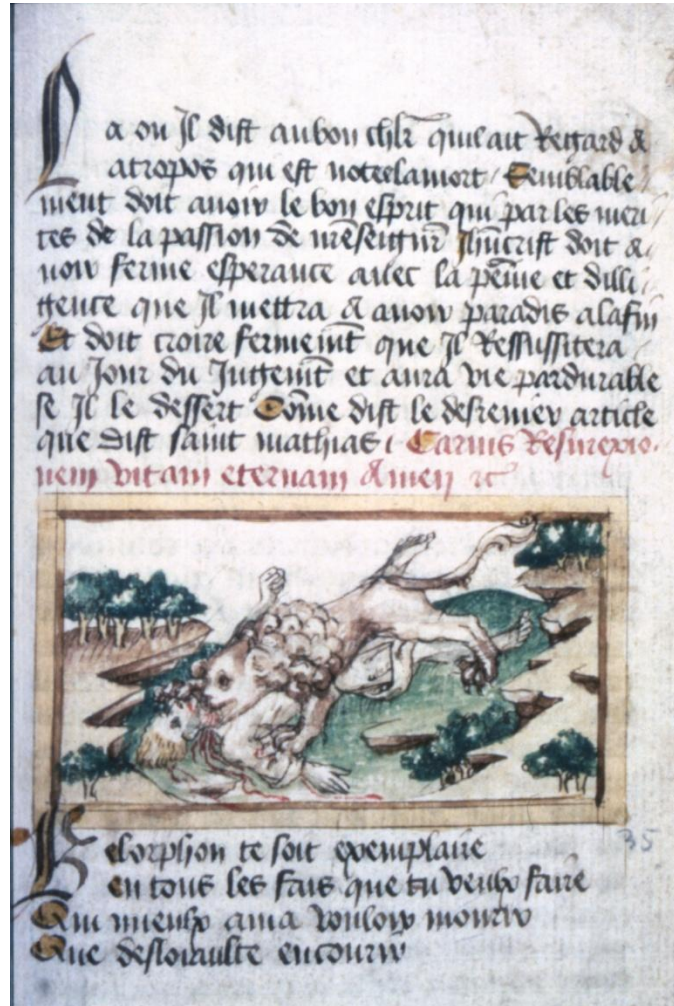 La ou Jl dist au bon chl̄r quil ait Regard a
atropos qui est notee la mort / Semblable
ment doit avoir le bon esprit qui par les meri
tes de la passion de nr̄e seignr̄ Jhūcrist doit a
voir ferme esperance avec la peine et dilli
gence que Jl mettra a avoir paradis a la fin
Et doit croire fermemt̄ que Jl Ressussitera
au Jour du Jugemt̄ et aura vie pardurable
se Jl le dessert Cōme dist le desrenier article
que dist saint mathias / Carnis Resurexio
nem vitam eternam Amen
Belorphon te soit exemplaire
en tous les fais que tu veulx faire
Qui mieulx ama vouloir mourir
Que desloiaulte encourir
35